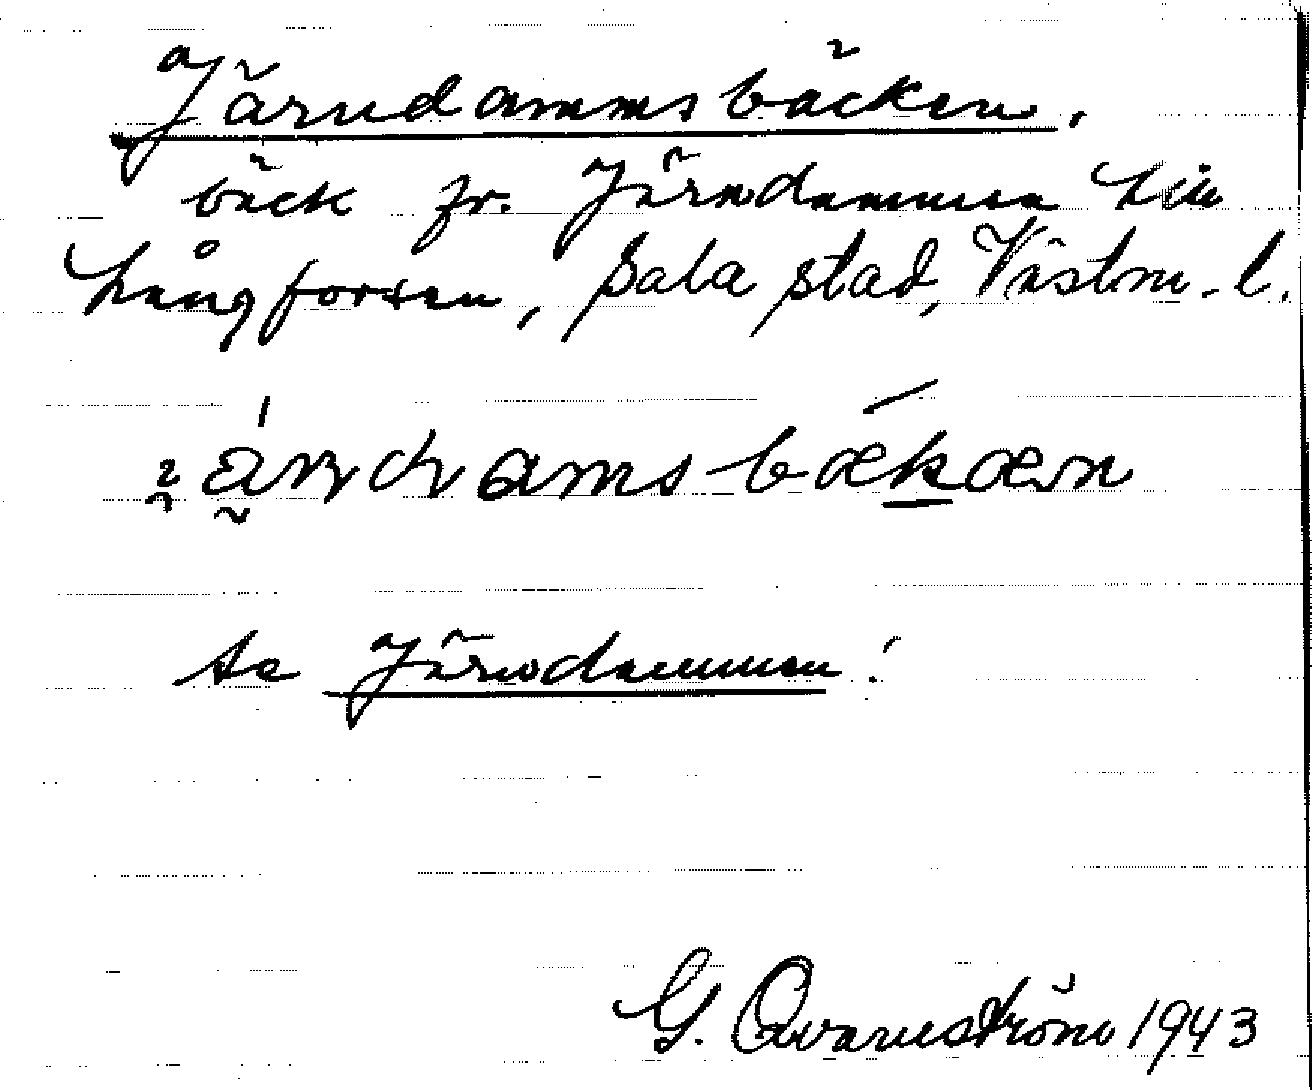 Järndammsbäcken.
bäck fr. Järndammen till
Långforsen, Sala stad, Västm. l.
se Järndammen!
G. Qvarnström 1943